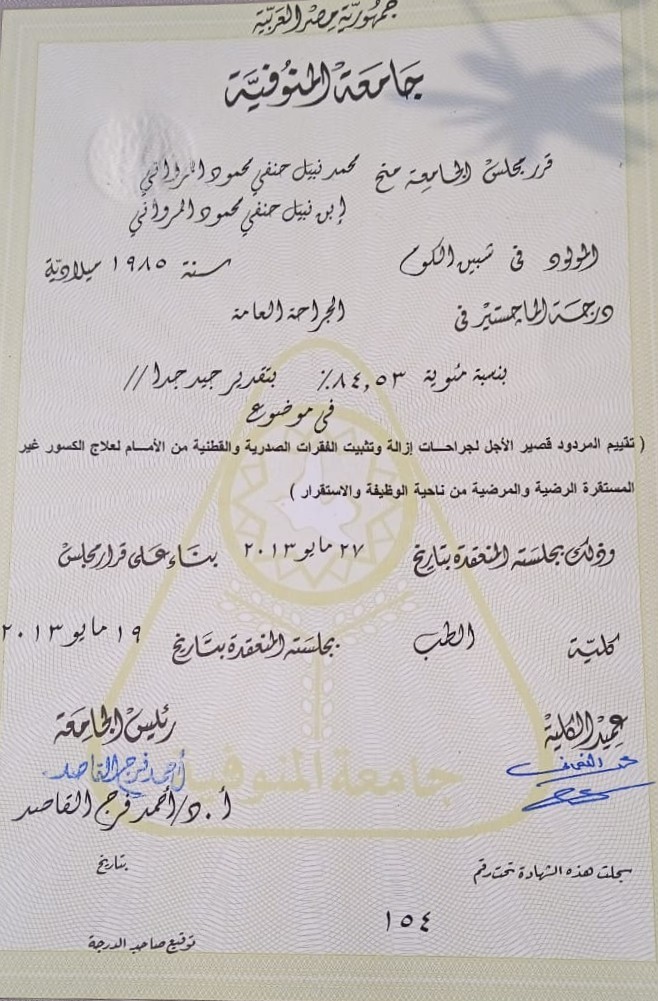 جمهورية مصر العربية
جامعة المنوفية
قرر مجلس الجامعة منح محمد نبيل حنفي محمود المرواني
إبن نبيل حنفي محمود المرواني
المولود في شبين الكوم سنة ١٩٨٥ ميلادية
درجة الماجستير في الجراحة العامة
بنسبة مئوية ٨٤,٥٣٪ بتقدير جيد جدا //
في موضوع
( تقييم المردود قصير الأجل لجراحات إزالة وتثبيت الفقرات الصدرية والقطنية من الأمام لعلاج الكسور غير
المستقرة الرضية والمرضية من ناحية الوظيفة والاستقرار )
وذلك بجلسته المنعقدة بتاريخ ٢٧ مايو ٢٠١٣ بناء على قرار مجلس
كلية الطب بجلسته المنعقدة بتاريخ ١٩ مايو ٢٠١٣
عميد الكلية رئيس الجامعة
أحمد فرج القاصد
أ.د/أحمد فرج القاصد
جامعة المنوفية
سجلت هذه الشهادة تحت رقم بتاريخ
١٥٤
توقيع صاحب الدرجة